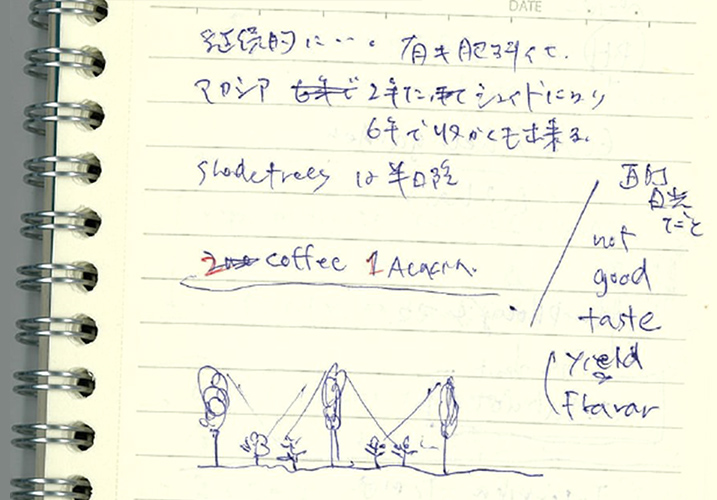 DATE
継続的に…。有機肥料で、
マカシア 6年で 2年たって シェイドになり
6年で収かくも出来る。
shadetrees は半日陰
2 coffee 1 Acacia.
直射
日光
not
good
taste
yield
Flavar